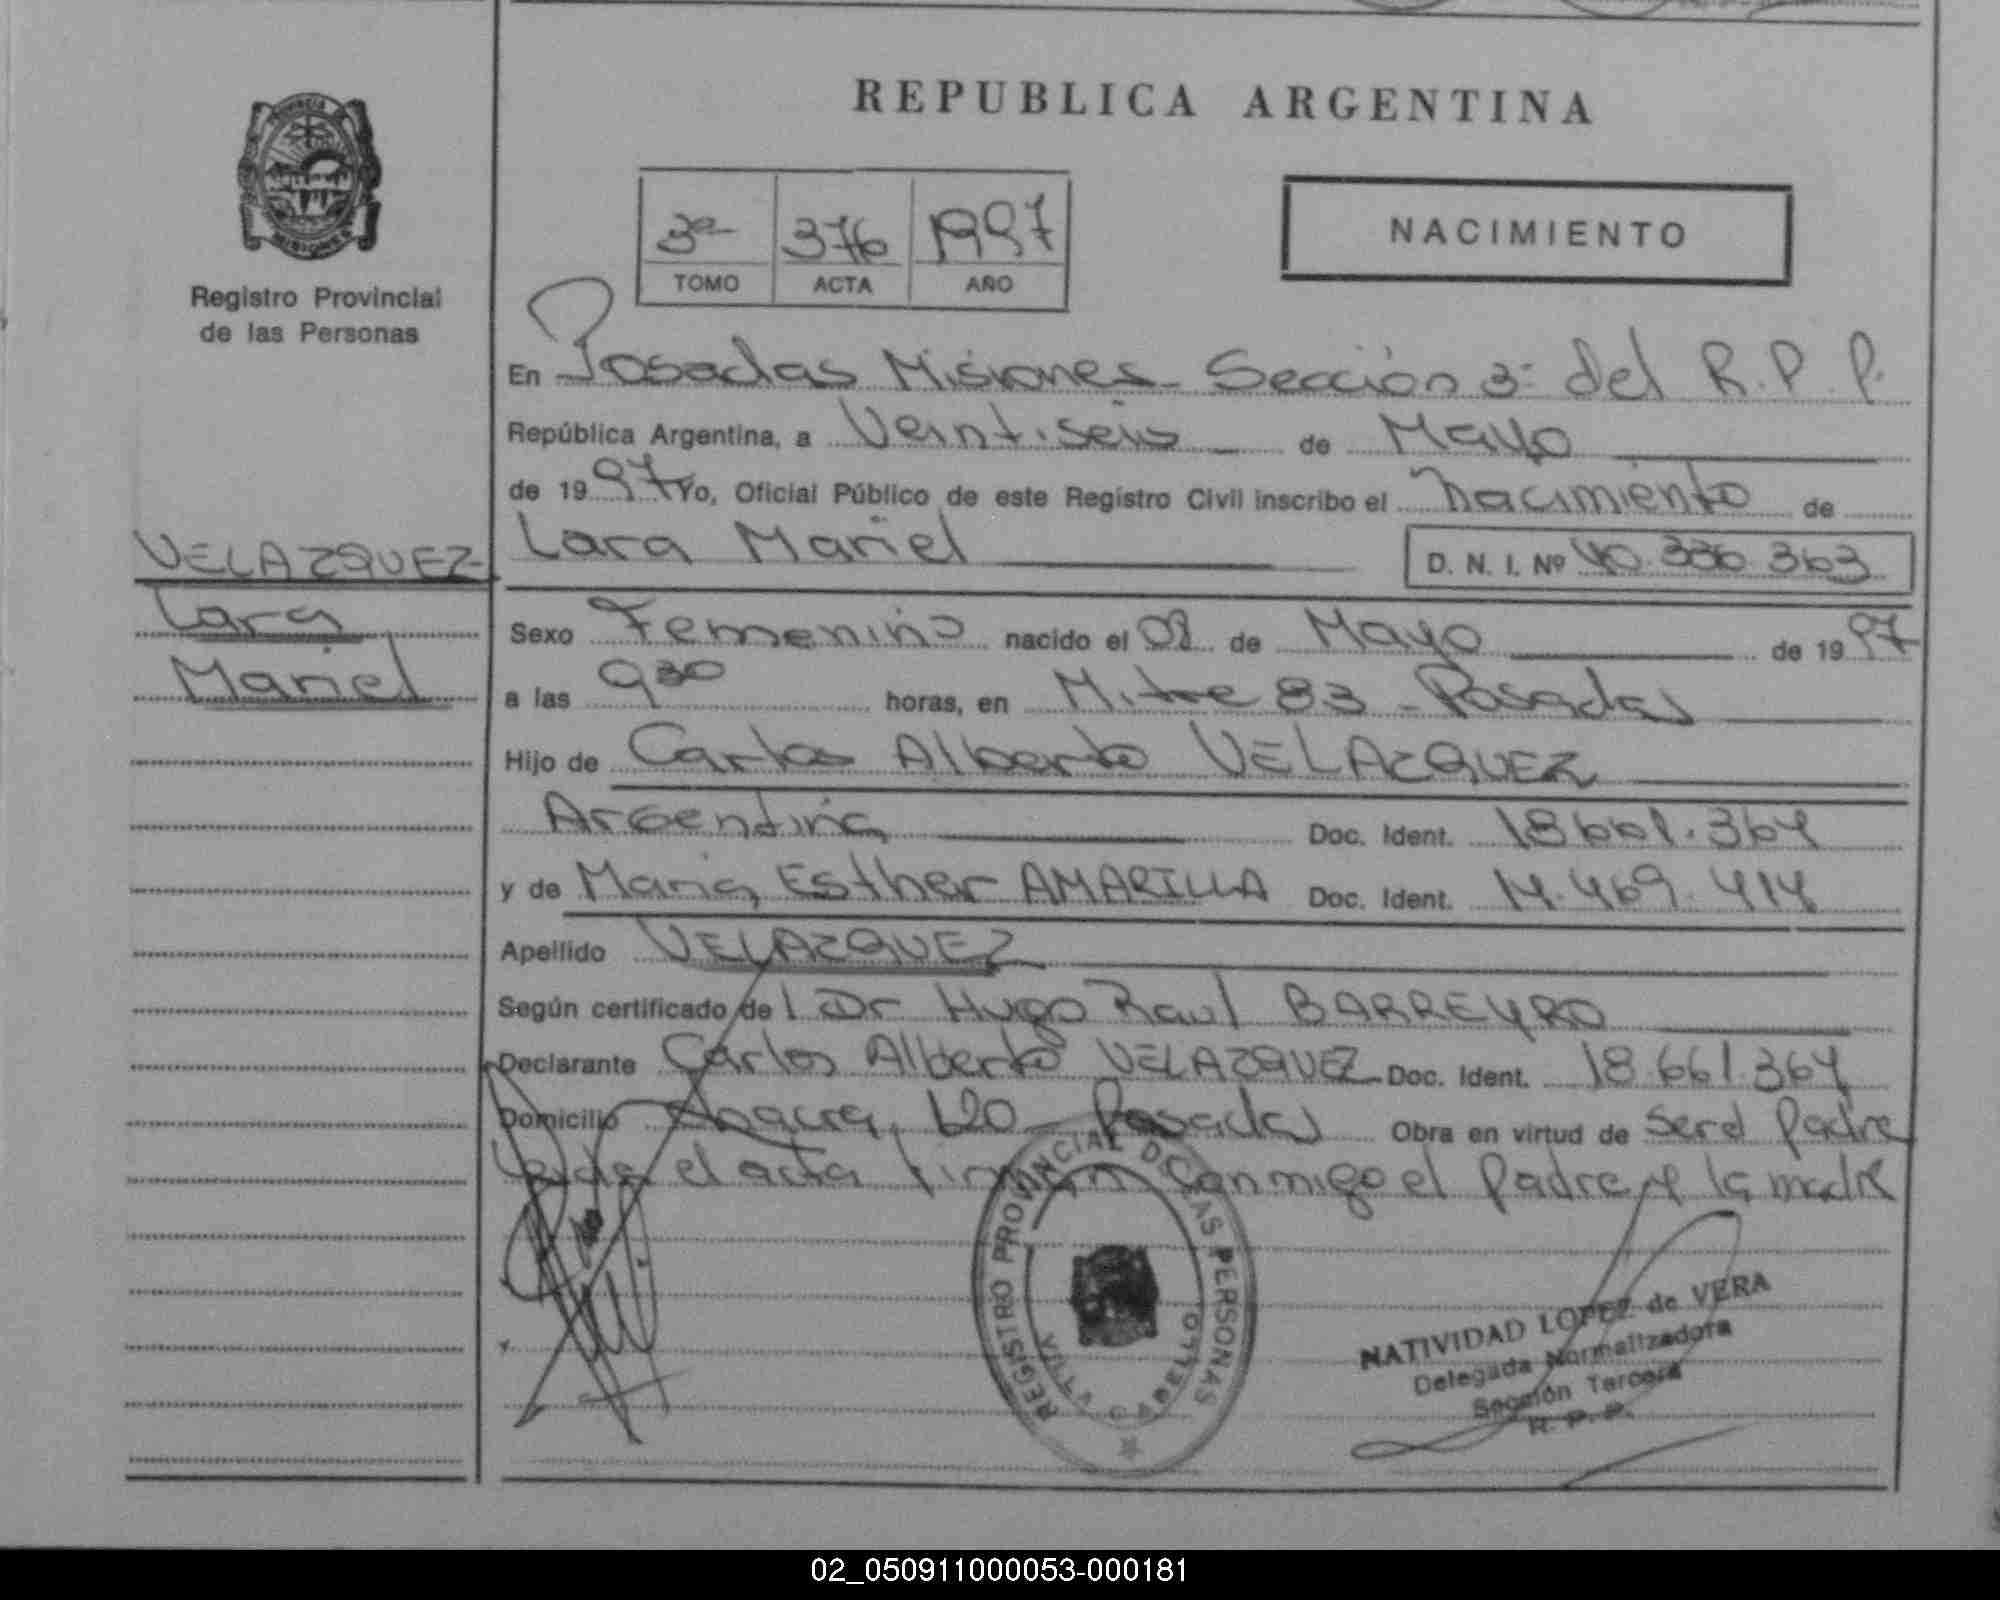 REPUBLICA ARGENTINA
PROVINCIA
MISIONES
Registro Provincial
de las Personas
3ª 376 1997
TOMO ACTA AÑO
NACIMIENTO
En Posadas Misiones - Sección 3ª del R. P. P.
República Argentina, a Veintiseis de Mayo
de 1997 Yo, Oficial Público de este Registro Civil inscribo el nacimiento de
Lara Mariel D. N. I. Nº 40.336.363
VELAZQUEZ
Lara
Mariel
Sexo Femenino nacido el 08 de Mayo de 1997
a las 9 30 horas, en Mitre 83 - Posadas
Hijo de Carlos Alberto VELAZQUEZ
Argentina Doc. Ident. 18661.364
y de Maria Esther AMARILLA Doc. Ident. 14.469.414
Apellido VELAZQUEZ
Según certificado del Dr Hugo Raul BARREYRO
Declarante Carlos Alberto VELAZQUEZ Doc. Ident. 18.661.364
Domicilio 620 Posadas Obra en virtud de ser el padre
Leida el acta firman conmigo el padre y la madre
REGISTRO PROVINCIAL DE LAS PERSONAS
VILLA CABELLO
NATIVIDAD LOPEZ de VERA
Delegada Normalizadora
Sección Tercera
R. P. P.
02_050911000053-000181